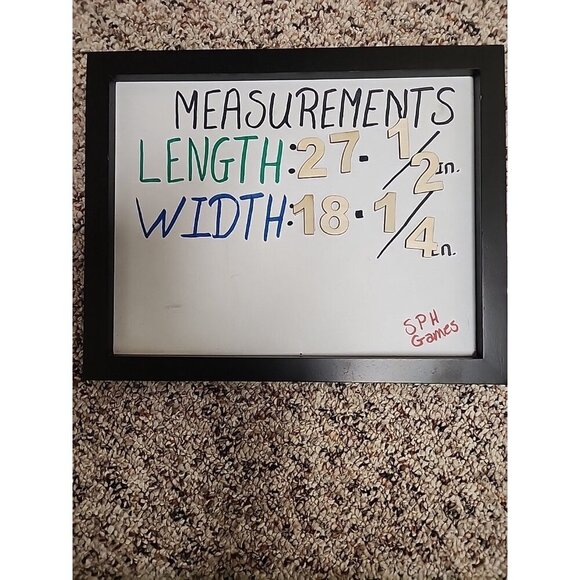 MEASUREMENTS
LENGTH: 27- 1/2 in.
WIDTH: 18-1/4 in.
SPH
Games